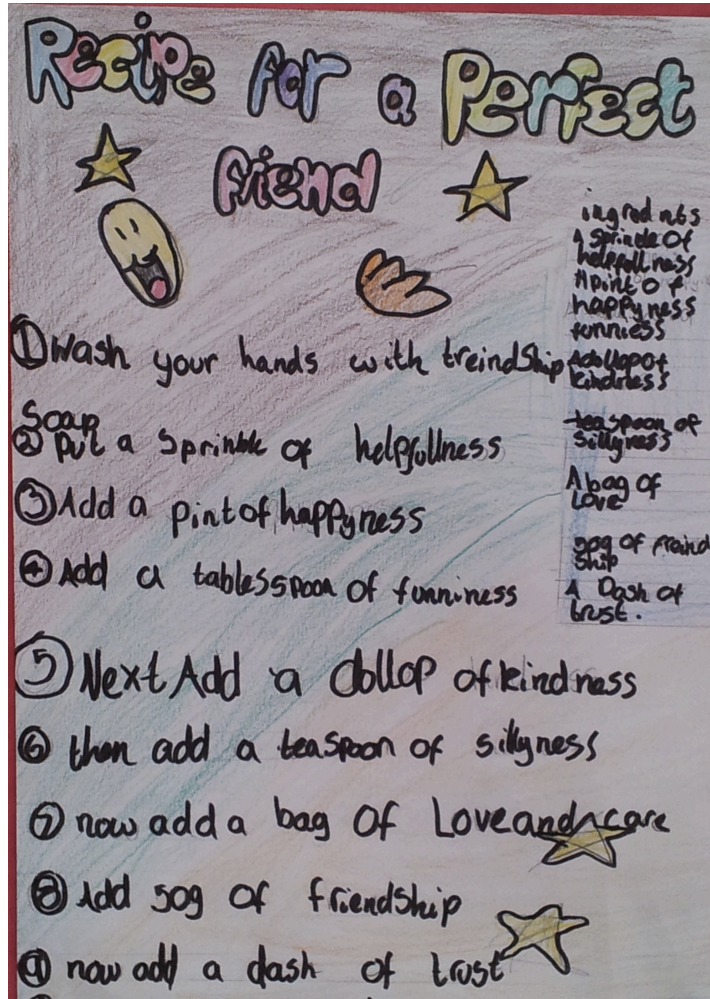 Recipe for a Perfect
friend
ingrednts
A sprincle of
helpfullness
A pint of
happyness
funniess
A dollop of
kindness
teaspoon of
sillyness
A bag of
Love
50g of freind
ship
A Dash of
trust.
① Wash your hands with freindship
Soap
② Put a Sprinkle of helpfullness
③ Add a pint of happyness
④ Add a tablesspoon of funniness
⑤ Next Add a dollop of kindness
⑥ then add a teaspoon of sillyness
⑦ now add a bag of Love and care
⑧ Add 50g of friendship
⑨ now add a dash of trust